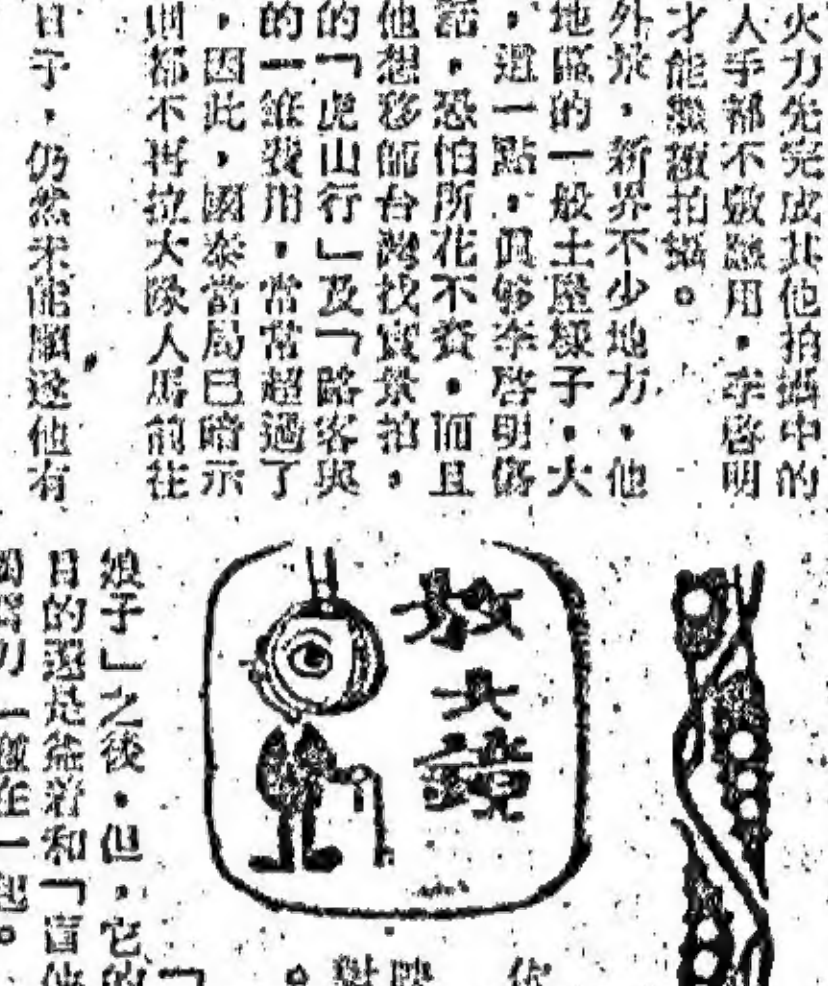 火力先完成其他拍攝中的
人手都不敷應用，李啓明
才能無拍攝。
外景，新界不少地方，他
地區的一般土屋樣子，大
，這一點，真够李啓明傷
話，恐怕所花不資，而且
他想移師台灣找實景拍，
的「虎山行」及「路客與
的一般費用，常常超過了
，因此，國泰當局已暗示
則都不再拉大隊人馬前往
日子，仍然未能順遂他有
放大鏡
娘子」之後，但，它的
目的還是能著和「盲俠
一起。